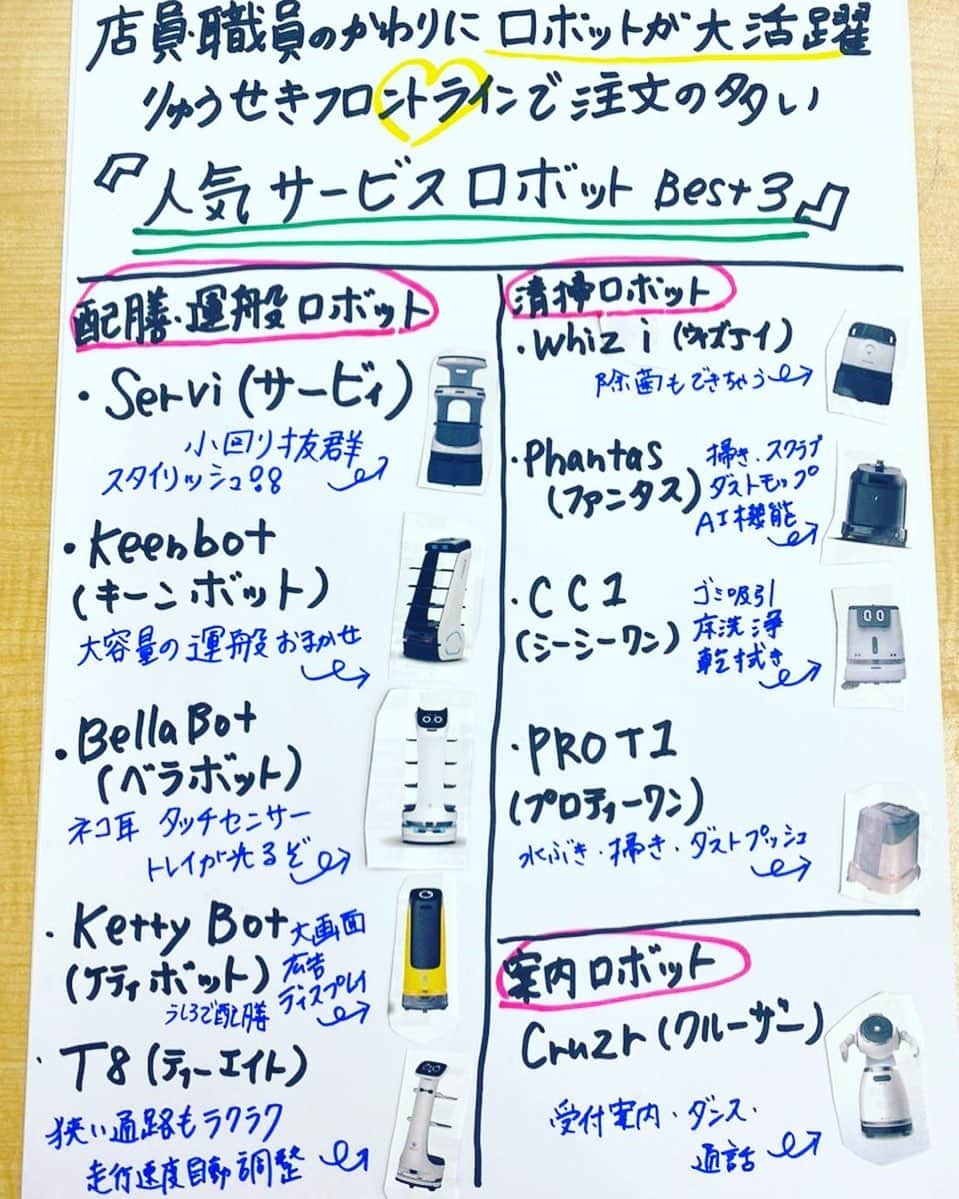 店員・職員のかわりにロボットが大活躍
りゅうせきフロントラインで注文の多い
『人気サービスロボットBest3』
配膳・運般ロボット
・Servi(サービィ)
小回り抜群
スタイリッシュ!!
・Keenbot
(キーンボット)
大容量の運般おまかせ
・BellaBot
(ベラボット)
ネコ耳 タッチセンサー
トレイが光るぞ
・Ketty Bot
(ケティボット)
大画面
広告
ディスプレイ
うしろで配膳
・T8(ティーエイト)
狭い通路もラクラク
走行速度自動調整
清掃ロボット
・Whiz i(ウィズアイ)
除菌もできちゃう
・Phantas
(ファンタス)
掃き・スクラブ
ダストモップ
AI機能
・CC1
(シーシーワン)
ゴミ吸引
床洗浄
乾拭き
・PRO T1
(プロティーワン)
水ぶき・掃き・ダストプッシュ
案内ロボット
Cruzr(クルーザー)
受付案内・ダンス・
通話